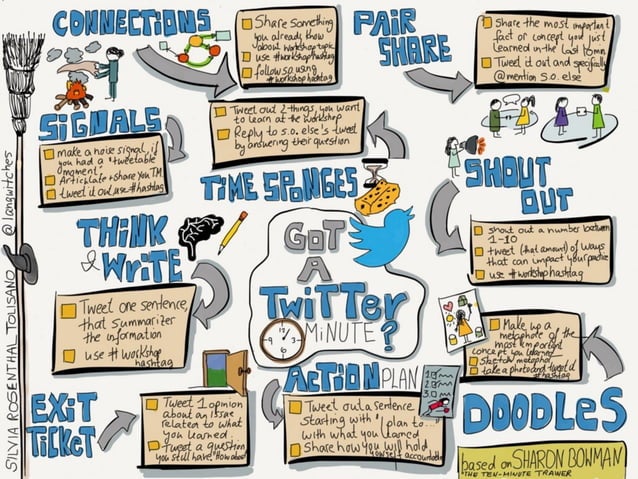 CONNECTIONS
Share something
you already know
about workshop topic
use #workshophashtag
follow s.o. using
#workshophashtag
PAIR
SHARE
Share the most important
fact or concept you just
learned in the last 10min
Tweet it out and specifically
@mention s.o. else
SIGNALS
make a noise signal, if
you had a "tweetable
moment"
Articulate + share your TM
tweet it out, use #hashtag
Tweet out 2 things, you want
to learn at the workshop
Reply to s.o. else's tweet
by answering their question
TIME SPONGES
SHOUT
OUT
shout out a number between
1-10
tweet (that amount) of ways
that can impact your practice
use #workshophashtag
THINK
& WRITE
Tweet one sentence,
that summarizes
the information
use # workshop
hashtag
GOT
A
TWITTER
MINUTE?
12
9 3
6
Make up a
metaphore of the
most important
concept you learned
Sketch metaphor
take a photo and tweet it
#hashtag
DOODLES
EXIT
TICKET
Tweet 1 opinion
about an issue
related to what
you learned.
Tweet a question
you still have, "How about
ACTION PLAN
Tweet out a sentence
starting with "I plan to..."
with what you learned
Share how you will hold
yourself accountable
based on SHARON BOWMAN
THE TEN-MINUTE TRAINER
SILVIA ROSENTHAL TOLISANO @langwitches